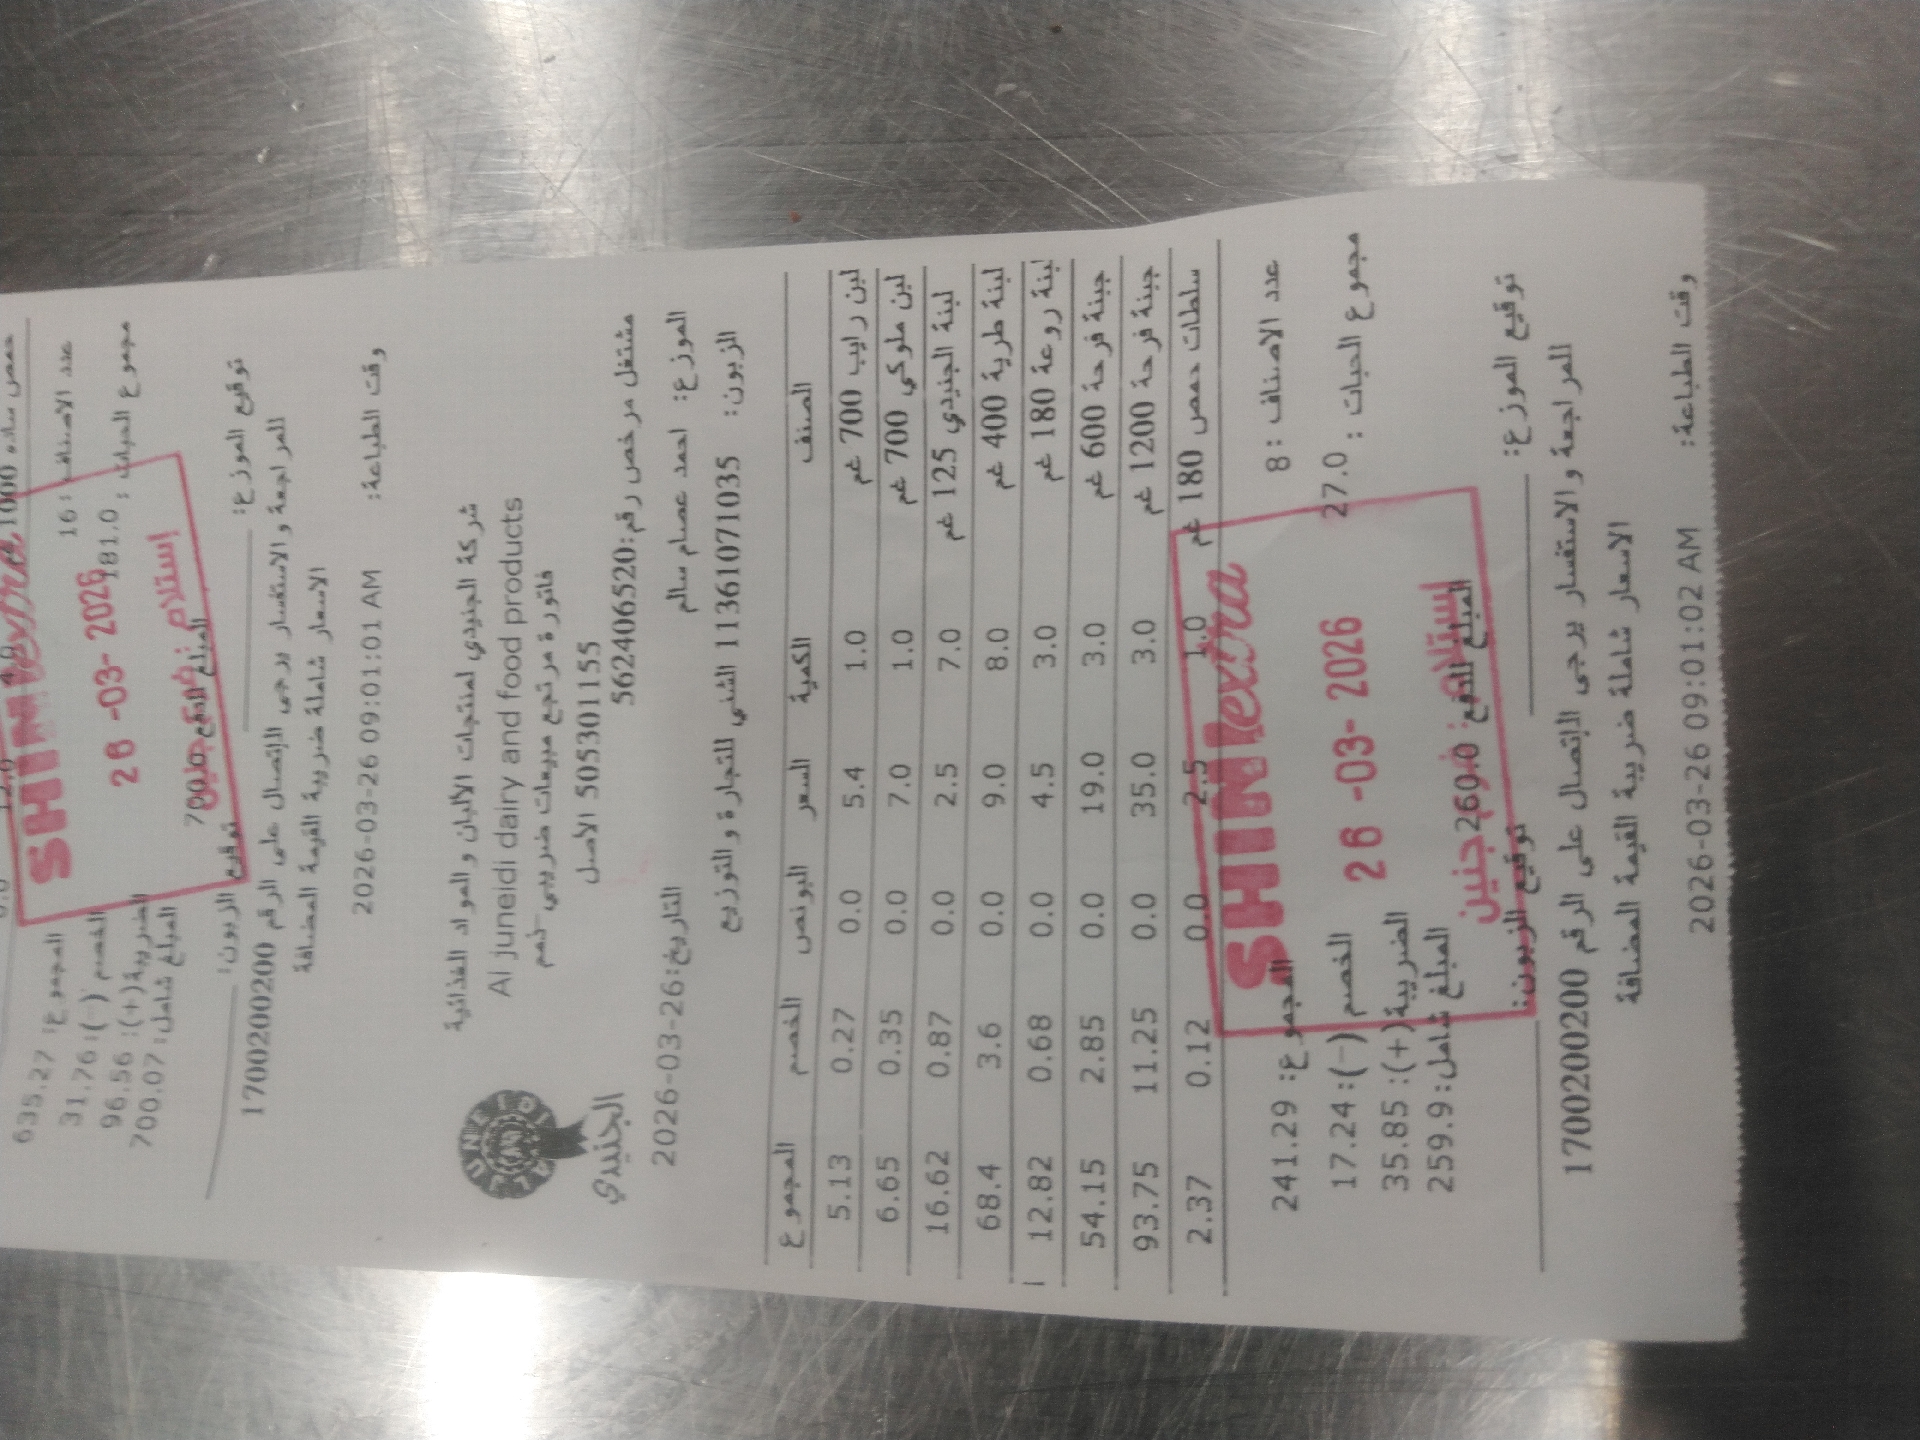 حمص ساده 1000
عدد الاصناف : 16
مجموع الحبات : 181.0
SHINI extra
26 -03- 2026
إستلام
المجموع: 635.27
الخصم (-): 31.76
الضريبة(+): 96.56
المبلغ شامل: 700.07
المبلغ الدفع 700.0
توقيع الموزع:
توقيع الزبون:
للمراجعة والاستفسار يرجى الإتصال على الرقم 1700200200
الاسعار شاملة ضريبة القيمة المضافة
وقت الطباعة: 2026-03-26 09:01:01 AM
شركة الجنيدي لمنتجات الألبان والمواد الغذائية
Al juneidi dairy and food products
فاتورة مرتجع مبيعات ضريبي-ذمم
505301155 الأصل
الجنيدي
مشتغل مرخص رقم:562406520
الموزع: احمد عصام سالم
التاريخ:26-03-2026
الزبون: 1136107035 الشني للتجارة والتوزيع
الصنف الكمية السعر البونص الخصم المجموع
لبن رايب 700 غم 1.0 5.4 0.0 0.27 5.13
لبن ملوكي 700 غم 1.0 7.0 0.0 0.35 6.65
لبنة الجنيدي 125 غم 7.0 2.5 0.0 0.87 16.62
لبنة طرية 400 غم 8.0 9.0 0.0 3.6 68.4
لبنة روعة 180 غم 3.0 4.5 0.0 0.68 12.82
جبنة فرحة 600 غم 3.0 19.0 0.0 2.85 54.15
جبنة فرحة 1200 غم 3.0 35.0 0.0 11.25 93.75
سلطات حمص 180 غم 1.0 2.5 0.0 0.12 2.37
عدد الاصناف : 8
مجموع الحبات : 27.0
SHINI extra
26 -03- 2026
إستلام : فرع جنين
المجموع: 241.29
الخصم (-): 17.24
الضريبة(+): 35.85
المبلغ شامل: 259.9
المبلغ الدفع 260.0
توقيع الموزع:
توقيع الزبون:
للمراجعة والاستفسار يرجى الإتصال على الرقم 1700200200
الاسعار شاملة ضريبة القيمة المضافة
وقت الطباعة: 2026-03-26 09:01:02 AM